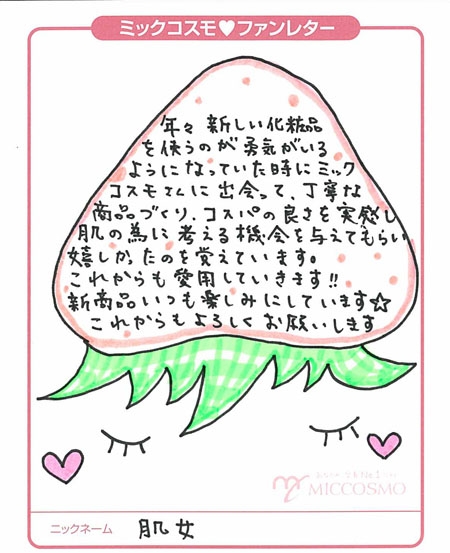 ミックコスモ♥ファンレター
年々新しい化粧品
を使うのが勇気がいる
ようになっていた時にミック
コスモさんに出会って、丁寧な
商品づくり、コスパの良さを実感し
肌の為に考える機会を与えてもらい
嬉しかったのを覚えています。
これからも愛用していきます!!
新商品いつも楽しみにしています☆
これからもよろしくお願いします
MICCOSMO
ニックネーム 肌女